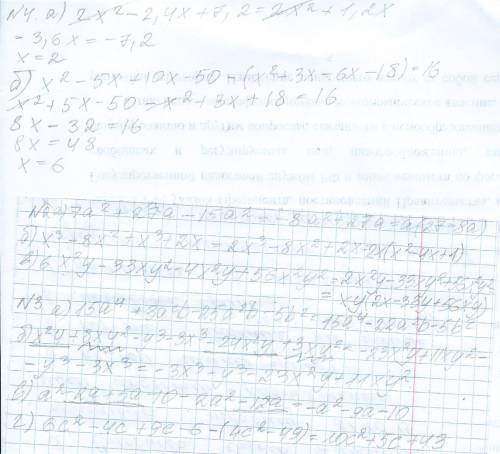 №4. а) 2x² - 2,4x + 7,2 = 2x² + 1,2x
- 3,6x = -7,2
x = 2
б) x² - 5x + 10x - 50 - (x² + 3x - 6x - 18) = 16
x² + 5x - 50 - x² + 3x + 18 = 16
8x - 32 = 16
8x = 48
x = 6
№2. 7a² + 27a - 15a² = -8a² + 27a = a(27-8a)
б) x³ - 8x² + x³ + 2x = 2x³ - 8x² + 2x = 2x(x² - 4x + 1)
в) 6x²y - 33xy² - 4x²y + 56x²y² = 2x²y - 33xy² + 56x²y²
= xy(2x - 33y + 56xy)
№3. а) 15a⁴ + 3a²b - 25a²b - 5b² = 15a⁴ - 22a²b - 5b²
б) x²y + 8xy² - y³ - 3x³ - 24x²y + 3xy² = -23x²y + 11xy² -
- y³ - 3x³ = -3x³ - y³ - 23x²y + 11xy²
в) a² - 2a + 5a - 10 - 2a² - 12a = -a² - 9a - 10
г) 6c² - 4c + 9c - 6 - (4c² - 49) = 10c² + 5c + 43